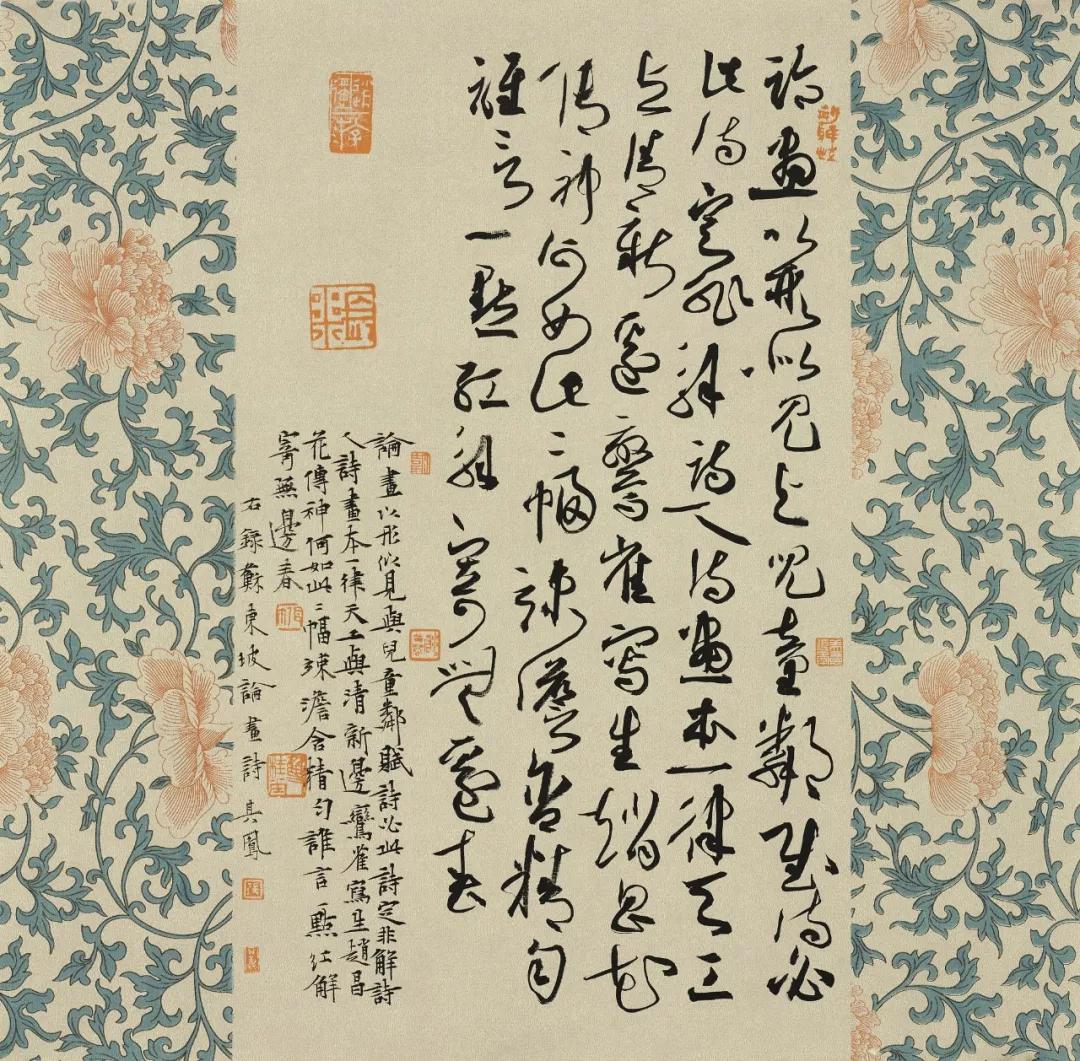 論畫以形似見與兒童鄰賦詩必
此詩定非解詩人詩畫本一律天工
與清新邊鸞雀寫生趙昌花
傳神何如此二幅疎澹含精勻
誰言一點紅解寄無邊春
論畫以形似見與兒童鄰賦詩必此詩定非解詩
人詩畫本一律天工與清新邊鸞雀寫生趙昌
花傳神何如此二幅疎澹含精勻誰言一點紅解
寄無邊春
右錄蘇東坡論畫詩其鳳